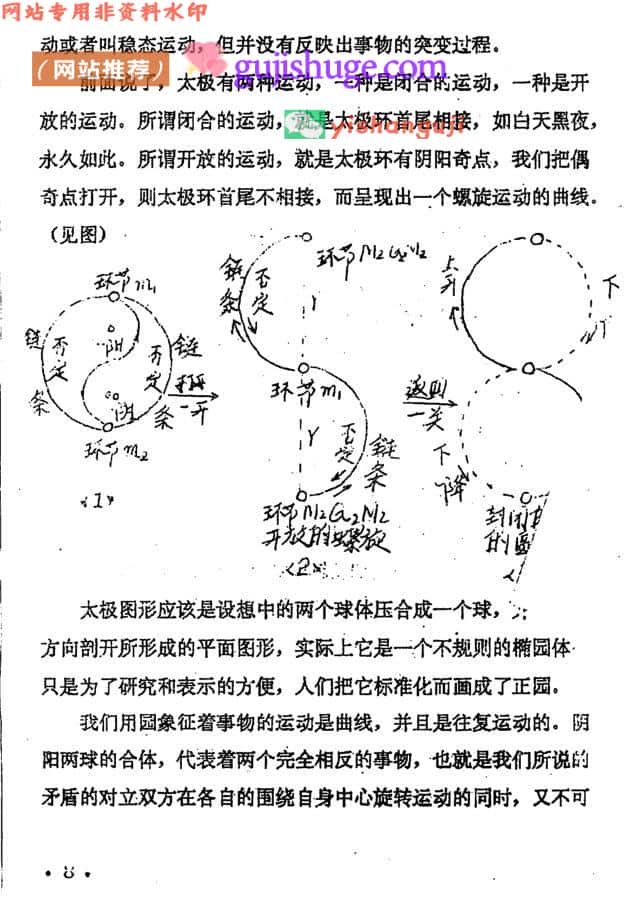 网站专用非资料水印
动或者叫稳态运动，但并没有反映出事物的突变过程。
（网站推荐）
gujishuge.com
前面说了，太极有两种运动，一种是闭合的运动，一种是开
放的运动。所谓闭合的运动，就是太极环首尾相接，如白天黑夜，
yishanguji
永久如此。所谓开放的运动，就是太极环有阴阳奇点，我们把偶
奇点打开，则太极环首尾不相接，而呈现出一个螺旋运动的曲线。
（见图）
环节m₁
链条
否定
阳
阴
否定
链条
环节m₂
一开
<1>
链条
否定
环节M₂G₂M₂
环节m₁
否定
链条
环节M₂G₂M₂
开放的螺旋
<2>
返则
一关
上升
下
下降
封闭
的
太极图形应该是设想中的两个球体压合成一个球，
方向剖开所形成的平面图形，实际上它是一个不规则的椭园体
只是为了研究和表示的方便，人们把它标准化而画成了正园。
我们用园象征着事物的运动是曲线，并且是往复运动的。阴
阳两球的合体，代表着两个完全相反的事物，也就是我们所说的
矛盾的对立双方在各自的围绕自身中心旋转运动的同时，又不可
·8·